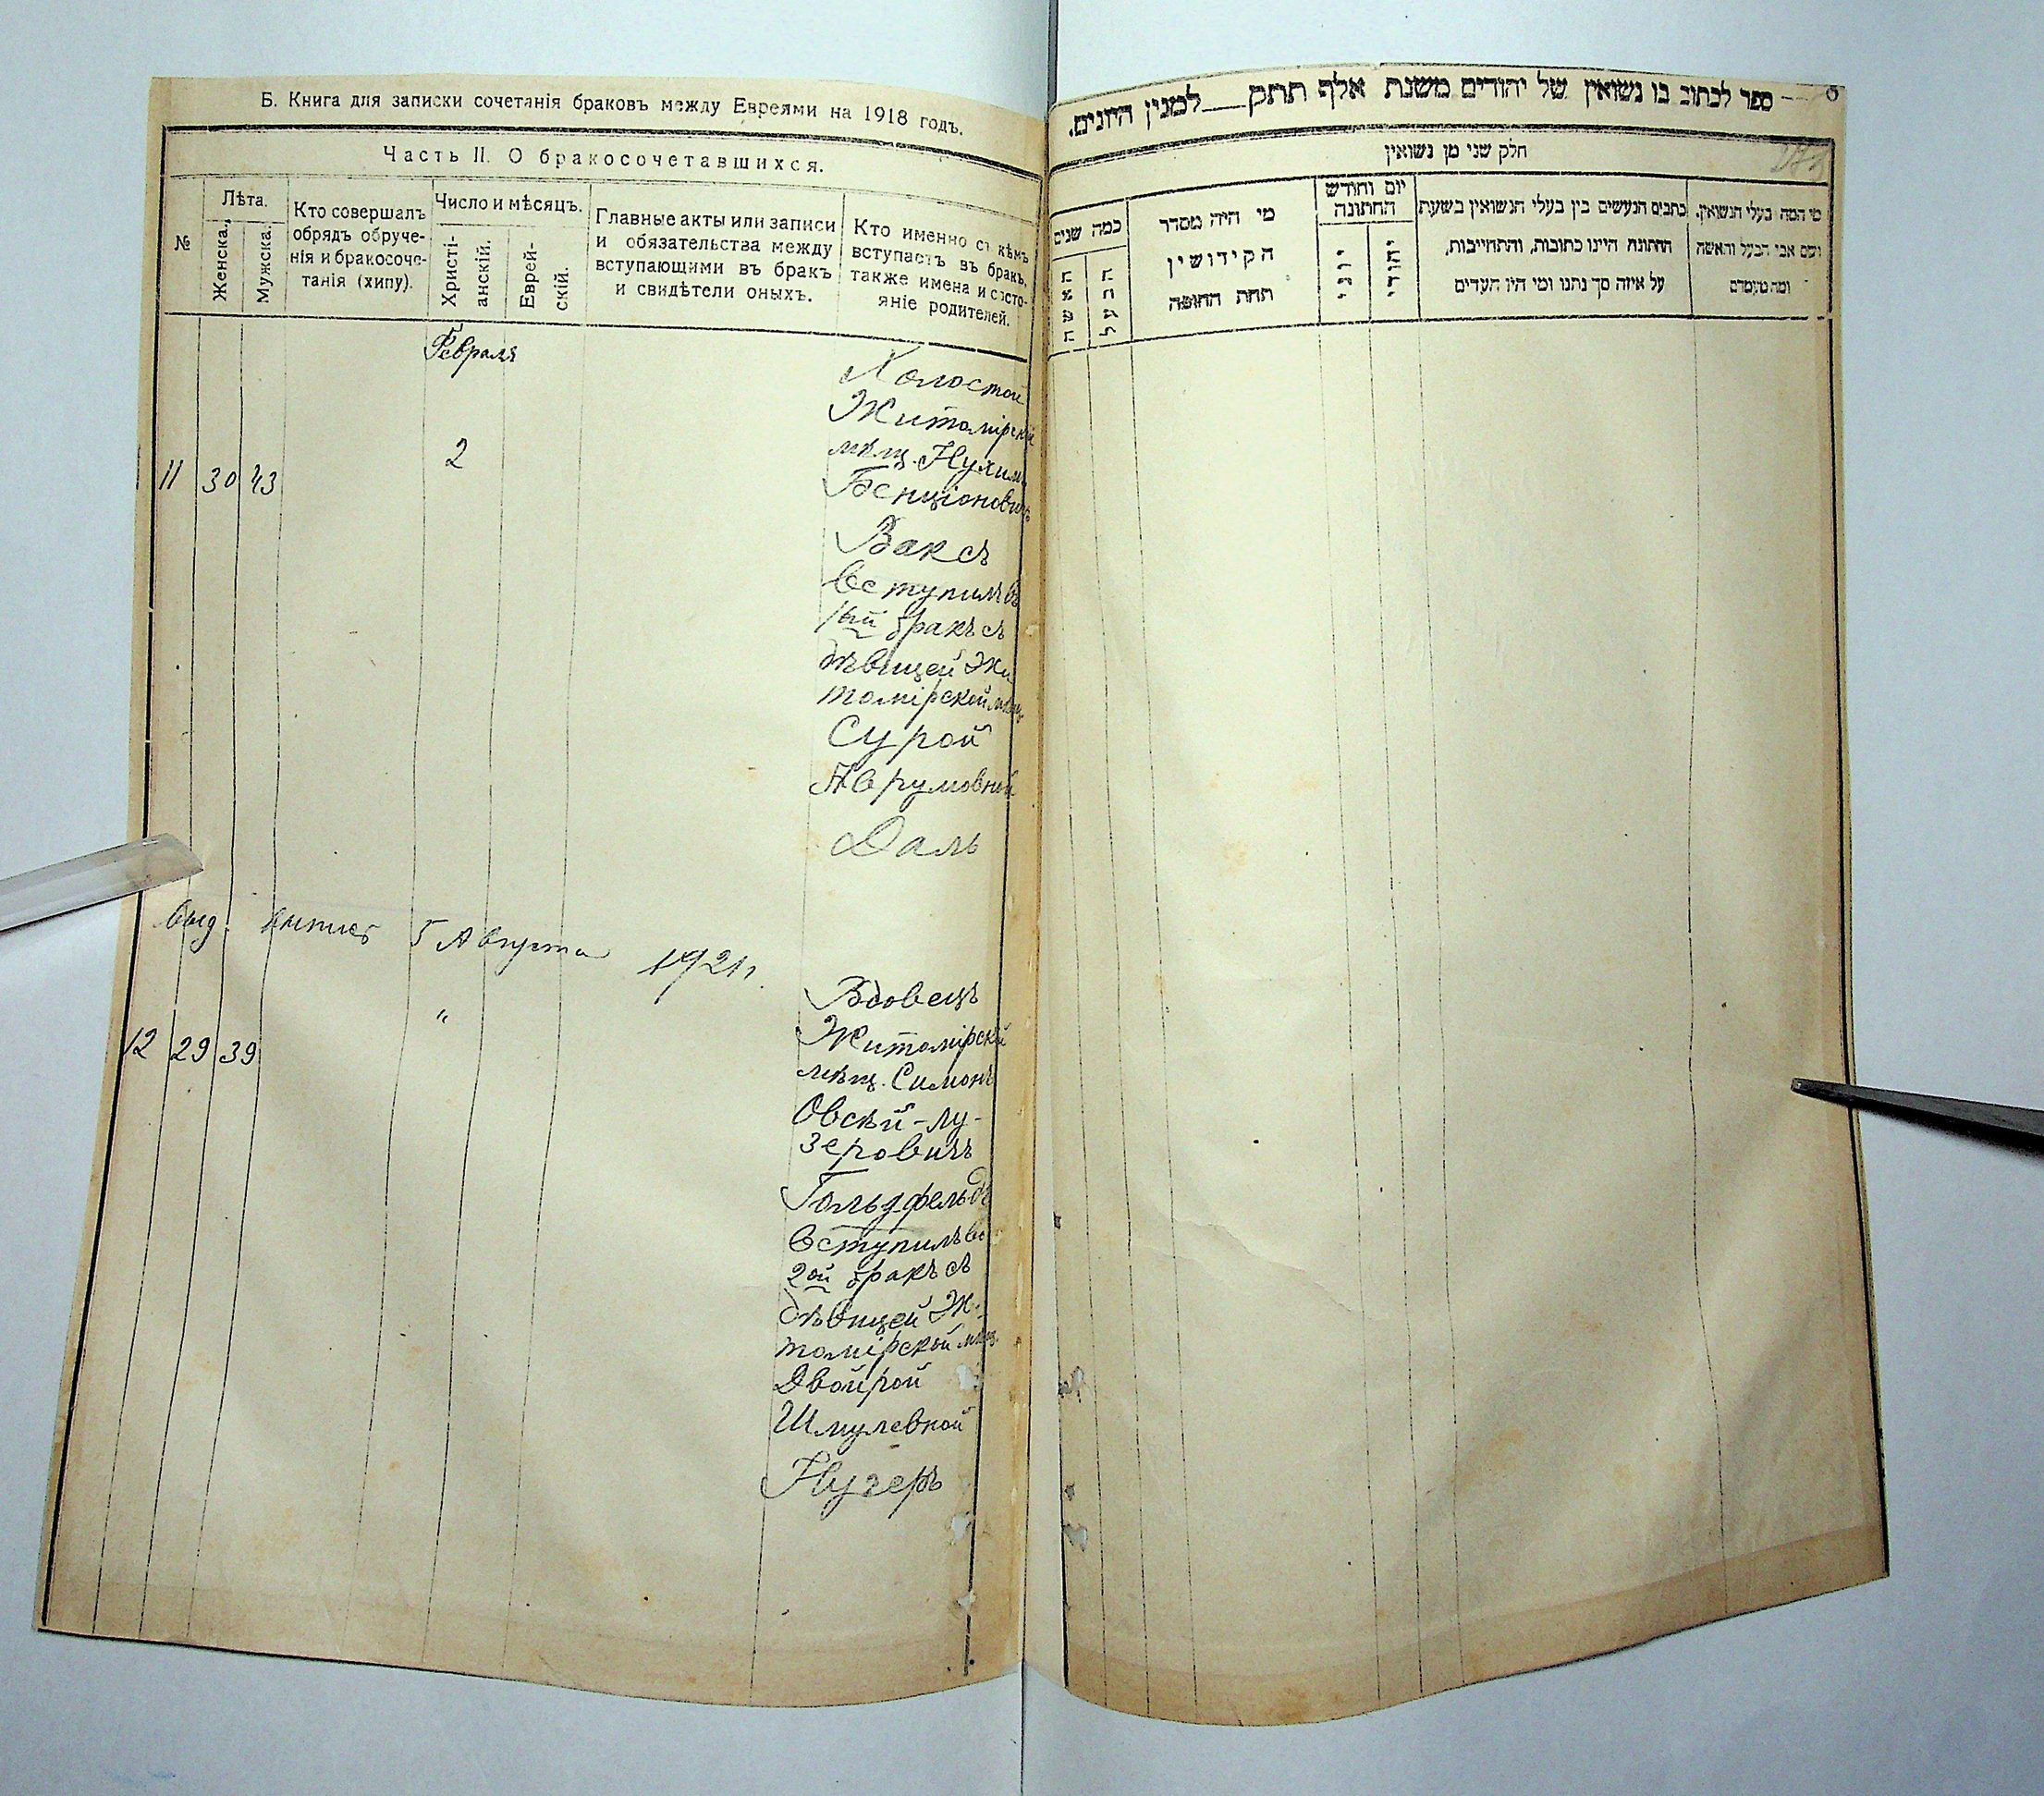 Б. Книга для записки сочетанія браковъ между Евреями на 1918 годъ.
Часть II. О бракосочетавшихся.
№
Лѣта.
Женска.
Мужска.
Кто совершалъ
обрядъ обруче-
нія и бракосоче-
танія (хипу).
Число и мѣсяцъ.
Христі-
анскій.
Еврей-
скій.
Главные акты или записи
и обязательства между
вступающими въ бракъ
и свидѣтели оныхъ.
Кто именно съ кѣмъ
вступаетъ въ бракъ,
также имена и состо-
яніе родителей.
Февраля
11 30 43 2
Холостой
Житомірскій
мѣщ. Нухимъ
Бенціоновичъ
Ваксъ
вступилъ въ
1ый бракъ съ
дѣвицей Жи-
томірской мѣщ.
Сурой
Аврумовной
Даль
выд. выпись 5 Августа 1921 г.
12 29 39 "
Вдовецъ
Житомірскій
мѣщ. Симонъ
Овсѣй-Лу-
зеровичъ
Гольдфельдъ
вступилъ во
2ой бракъ съ
дѣвицей Жи-
томірской мѣщ.
Двойрой
Шмулевной
ספר לכתוב בו נשואין של יהודים משנת אלף תתק למנין היונים.
חלק שני מן נשואין
מי המה בעלי הנשואין,
ושם אבי הבעל והאשה
ומה מעמדם
כתבים הנעשים בין בעלי הנשואין בשעת
החתונה היינו כתובות, והתחייבות,
על איזה סך נתנו ומי היו העדים
יום וחודש
החתונה
יהודי
יוני
מי היה מסדר
הקידושין
תחת החופה
כמה שנים
הבעל
האשה